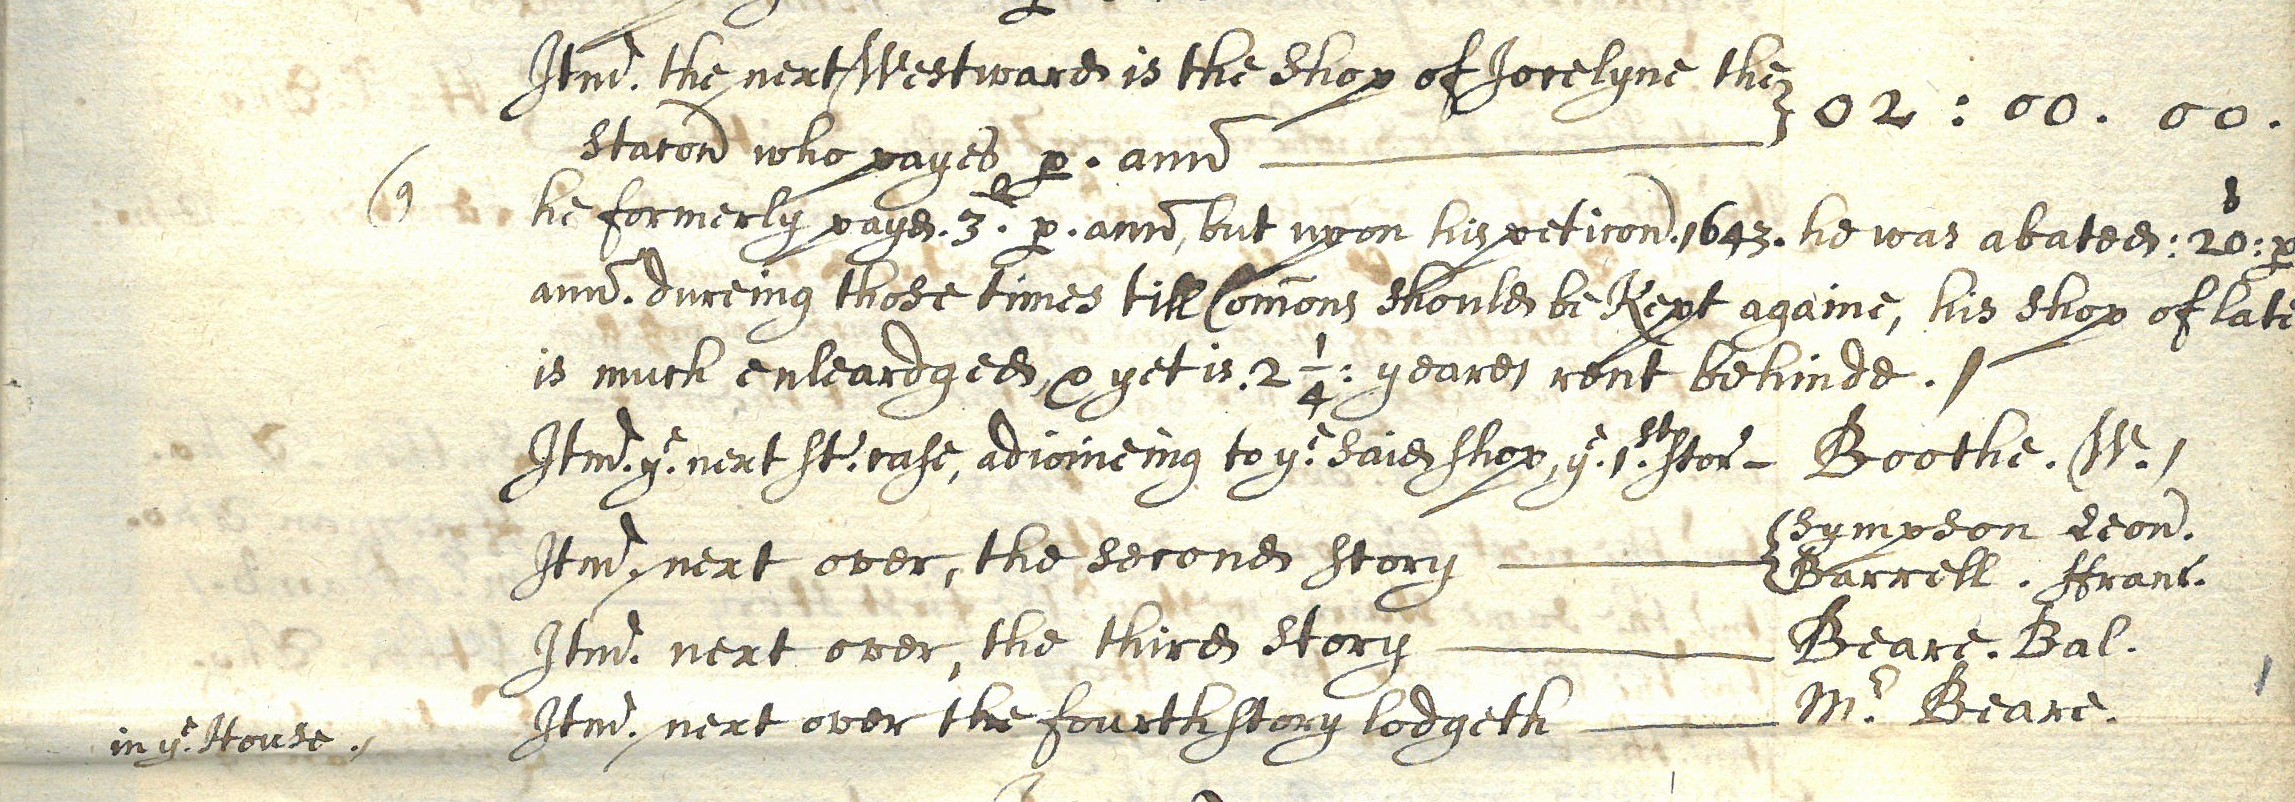 Itm̃. the next Westward is the shop of Jocelyne the
Stacon̄ who payes p. ann̄ ——— } 02 : 00 . 00 .
he formerly payd. 3ˡ. p. ann̄, but upon his peticon̄. 1643. he was abated : 20ˢ : p
ann̄. dureing those times till Com̄ons should be Kept againe, his shop of late
is much enleardged, & yet is. 2 1/4 : yeares rent behinde . /
Itm̃. yᵉ. next stʳ. case, adioineing to yᵉ said shop, yᵉ. 1ˢᵗ. storʸ – Boothe . W. /
Itm̃. next over, the second story ——— { Sympson Leon̄.
Barrell . ffranc.
Itm̃. next over, the third story ——— Beare . Bal.
in yᵉ. House . / Itm̃. next over the fourth story lodgeth ——— Mʳ. Beare.